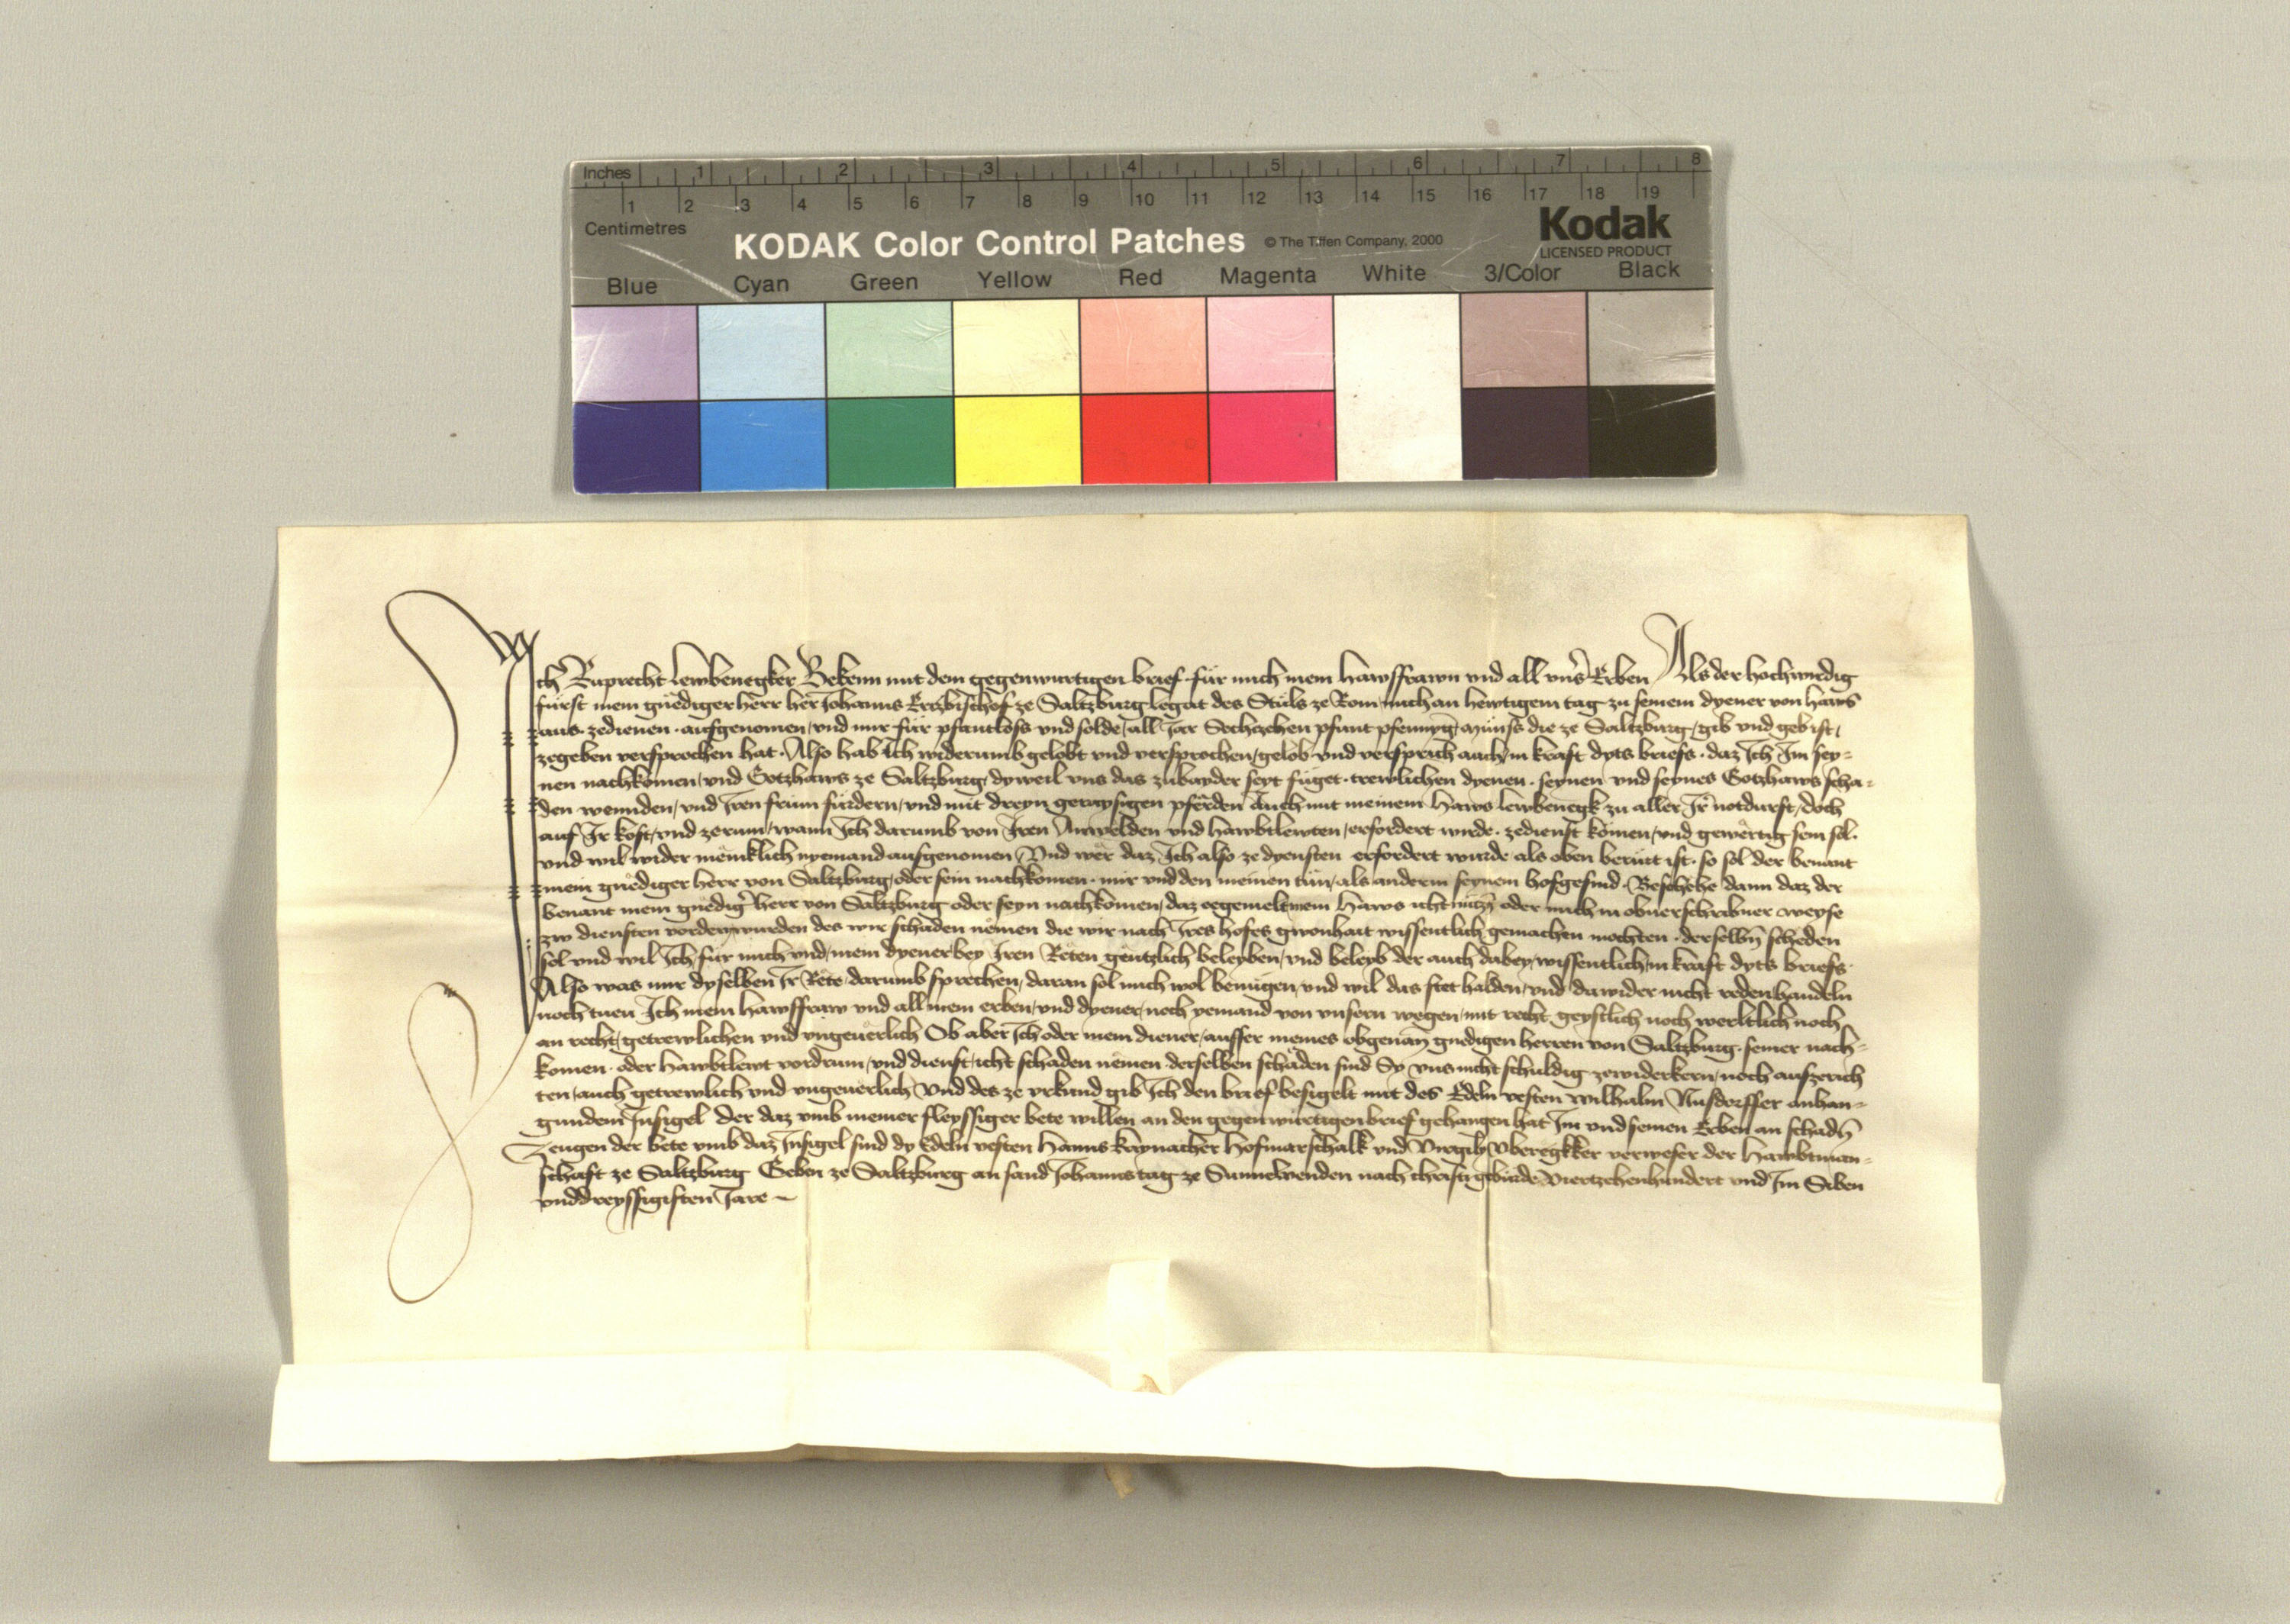 Inches 1 2 3 4 5 6 7 8
1 2 3 4 5 6 7 8 9 10 11 12 13 14 15 16 17 18 19
Centimetres
KODAK Color Control Patches © The Tiffen Company, 2000
Kodak
LICENSED PRODUCT
Blue Cyan Green Yellow Red Magenta White 3/Color Black
Ich Ruprecht Lewbenegker Bekenn mit dem gegenwurtigen brief für mich mein hawsfrawn vnd all vnsʼ Erben Als der hochwirdig
fürst mein gnediger herr her Johanns Ertzbischof ze Saltzburg legat des Stůls ze Rom mich an hewtigem tag zu seinem dyener von haws
aus zedienen aufgenomen vnd mir für pfantloss vnd solde all Jar Sechczehen pfunt pfennyg münss die ze Saltzburg gib vnd geb ist,
zegeben versprochen hat. Also hab Ich widerumb gelobt vnd versprochen gelob vnd versprich auch in kraft dyts briefs. daz Ich Im sey=
nen nachkomen vnd Gotzhaws ze Saltzburg dyweil vns das zubayder seyt füget trewlichen dyenen. seynen vnd seynes Gotzhaws scha=
den wennden, vnd Iren frum fürdern, vnd mit dreyn geraysigen pferden Auch mit meinem haws lewbenegk zu aller Ir notdurft, doch
auf Ir kost, vnd zerung wann Ich darumb von Iren Anwelden vnd hawbtlewten erfordert wirde. zedienst komen, vnd gewertig sein sol.
vnd wil wider meniklich nyemand aufgenomen Vnd wer daz Ich also ze dyensten erfordert wurde als oben berürt ist. so sol der benant
mein gnediger herr von Saltzburg, oder sein nachkomen. mir vnd den meinen tün, als anderm seynem hofgesind. Beschehe dann daz der
benant mein gnedigʼ herr von Saltzburg oder seyn nachkomen, daz egemelt mein haws icht nützn̄ oder mich in obuerschribner weyse
zw diensten vordern wurden des wir schaden nemen die wir nach Ires hofes gwonhait wissentlich gemachen mochten. derselbn̄ scheden
sol vnd wil Ich für mich vnd mein dyener bey Iren Reten gentzlich beleyben, vnd beleyb der auch dabey wissentlich in kraft dyts briefs.
Also was mir dyselben Ir Rete darumb sprechen, daran sol mich wol benügen, vnd wil das stet halden, vnd dawider nicht reden handeln
noch tuen Ich mein hawsfraw vnd all mein erben, vnd dyener, noch yemand von vnsern wegen, mit recht geystlich noch werltlich noch
an recht, getrewlichen vnd vngeuerlich Ob aber Ich oder mein diener, ausser meines obgenan̄ gnedigen herren von Saltzburg. seiner nach=
komen. oder hawbtlewt vordrung vnd dienst, icht schaden nemen. derselben schaden sind Sy vns nicht schuldig zewiderkern, noch aufzerich
ten, auch getrewlich vnd vngeuerlich Vnd des ze vrkund gib Ich den brief besigelt mit des Edeln vesten Wilhalm Nusdorffer anhan=
gundem Insigel Der daz vmb meiner fleyssiger bete willen an den gegenwürtigen brief gehangen hat Im vnd seinen Erben an schadn̄
Zeugen der bete vmb daz Insigel sind dy Edeln vesten Hanns Raynacher Hofmarschalk vnd Virgily Vberegkker verweser der Hawbtman=
schaft ze Saltzburg Geben ze Saltzburg an sand Johannstag ze Sunnbenden nach christi gebürde Viertzehenhundert vnd Im Siben
vnddreyssigisten Jare